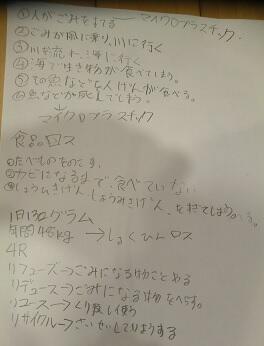 ①人がごみをすてる マイクロプラスチック
②ごみが風に乗り、川に行く
③川を流れ、海に行く
④海で生き物が食べてしまう。
⑤その魚などを人げんが食べる。
⑥魚などが死んでしまう。
マイクロプラスチック
食品ロス
①たべものをのこす。
②カビになるまで、食べていない
③しょうひきげん、しょうみきげん、をすぎてしまう
1日130グラム
年間48kg →しょくひんロス
4R
リフューズ→ごみになる物ことめる
リデュース→ごみになる物をへらす。
リユース→くり返し使う
リサイクル→さいせいしてりようする